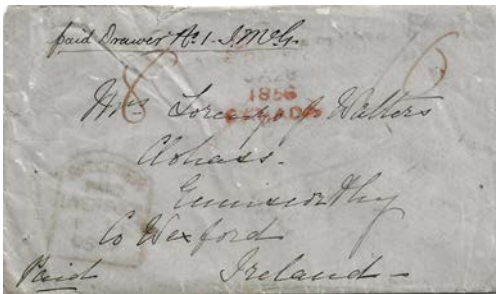 paid Drawer No. 1 - J. McG.
8
6
1856
CANADA
Mrs Lorenzo J Watters
Clohass.
Enniscorthy
Co Wexford
Paid
Ireland -